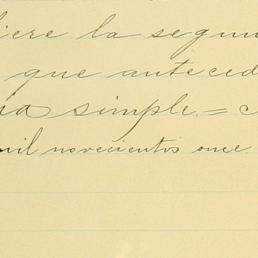 iere la segun
que anteced
simple. =
mil novecientos once.